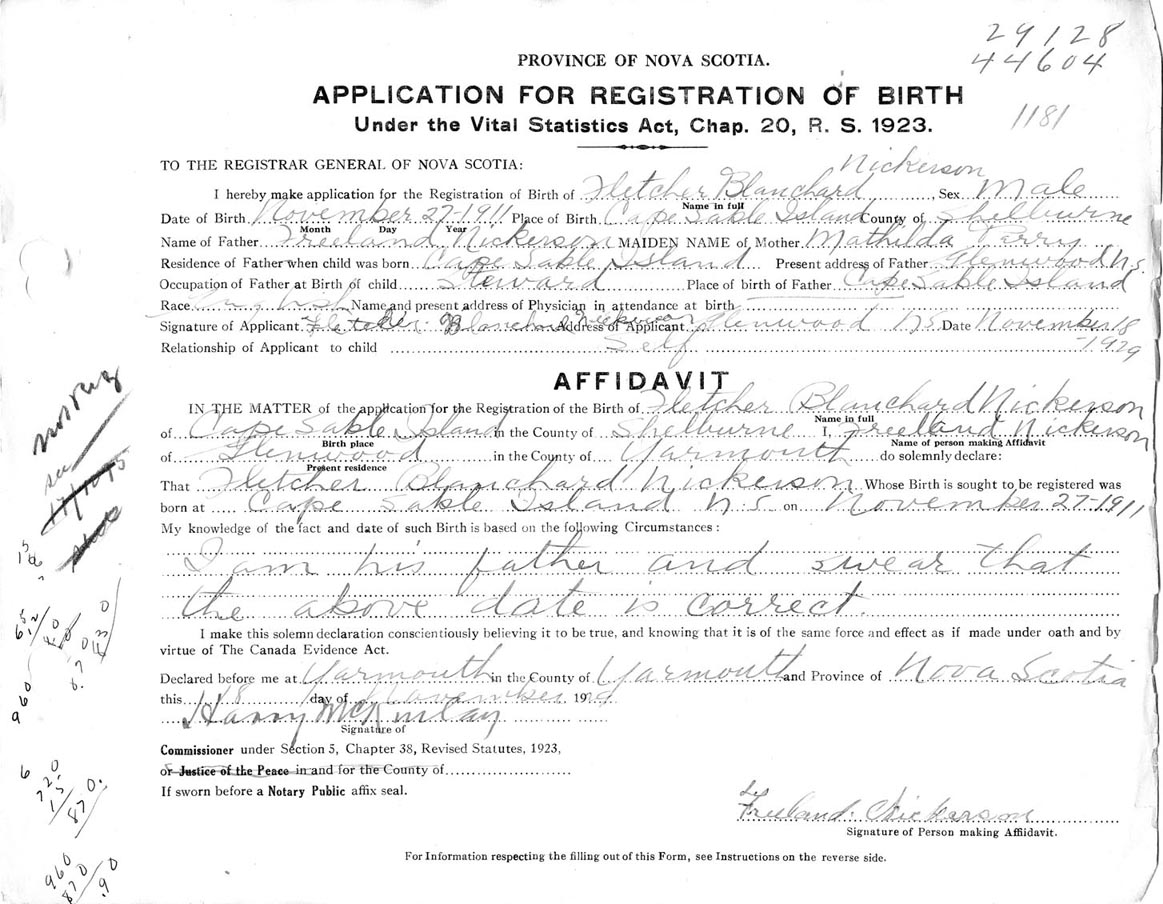 29128
44604
PROVINCE OF NOVA SCOTIA.
APPLICATION FOR REGISTRATION OF BIRTH
1181
Under the Vital Statistics Act, Chap. 20, R. S. 1923.
TO THE REGISTRAR GENERAL OF NOVA SCOTIA:
Nickerson
I hereby make application for the Registration of Birth of Fletcher Blanchard, Sex Male
Name in full
Date of Birth November 27-1911 Place of Birth Cape Sable Island County of Shelburne
Month Day Year
Name of Father Freeland Nickerson MAIDEN NAME of Mother Mathilda Perry
Residence of Father when child was born Cape Sable Island Present address of Father Glenwood N.S.
Occupation of Father at Birth of child Steward Place of birth of Father Cape Sable Island
Race English Name and present address of Physician in attendance at birth
Signature of Applicant Fletcher Blanchard Nickerson Address of Applicant Glenwood N.S. Date November 18
-1929
Relationship of Applicant to child Self
AFFIDAVIT
IN THE MATTER of the application for the Registration of the Birth of Fletcher Blanchard Nickerson
Name in full
of Cape Sable Island in the County of Shelburne I, Freeland Nickerson
Birth place Name of person making Affidavit
of Glenwood in the County of Yarmouth do solemnly declare:
Present residence
That Fletcher Blanchard Nickerson Whose Birth is sought to be registered was
born at Cape Sable Island N.S. on November 27-1911
My knowledge of the fact and date of such Birth is based on the following Circumstances:
I am his father and swear that
the above date is correct.
I make this solemn declaration conscientiously believing it to be true, and knowing that it is of the same force and effect as if made under oath and by
virtue of The Canada Evidence Act.
Declared before me at Yarmouth in the County of Yarmouth and Province of Nova Scotia
this 18 day of November 1929
Harry McKinlay
Signature of
Commissioner under Section 5, Chapter 38, Revised Statutes, 1923,
or Justice of the Peace in and for the County of
If sworn before a Notary Public affix seal.
Freeland Nickerson
Signature of Person making Affidavit.
For Information respecting the filling out of this Form, see Instructions on the reverse side.
960
960
870
.90